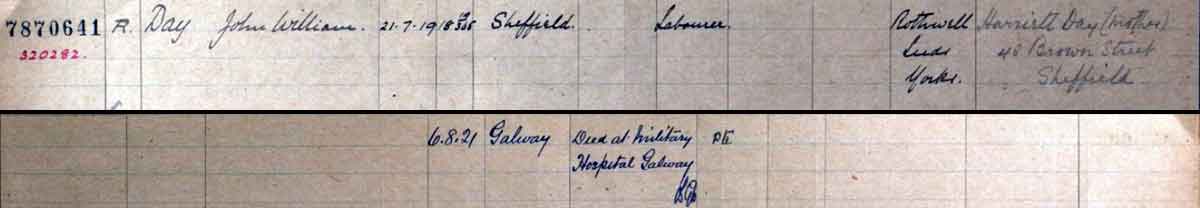 7870641 R. Day John William. 21-7-19 Sheffield. Labourer. Rothwell Harriett Day (Mother)
320282. Leeds 48 Brown Street
Yorks. Sheffield
6.8.21 Galway Died at Military Pte
Hospital Galway